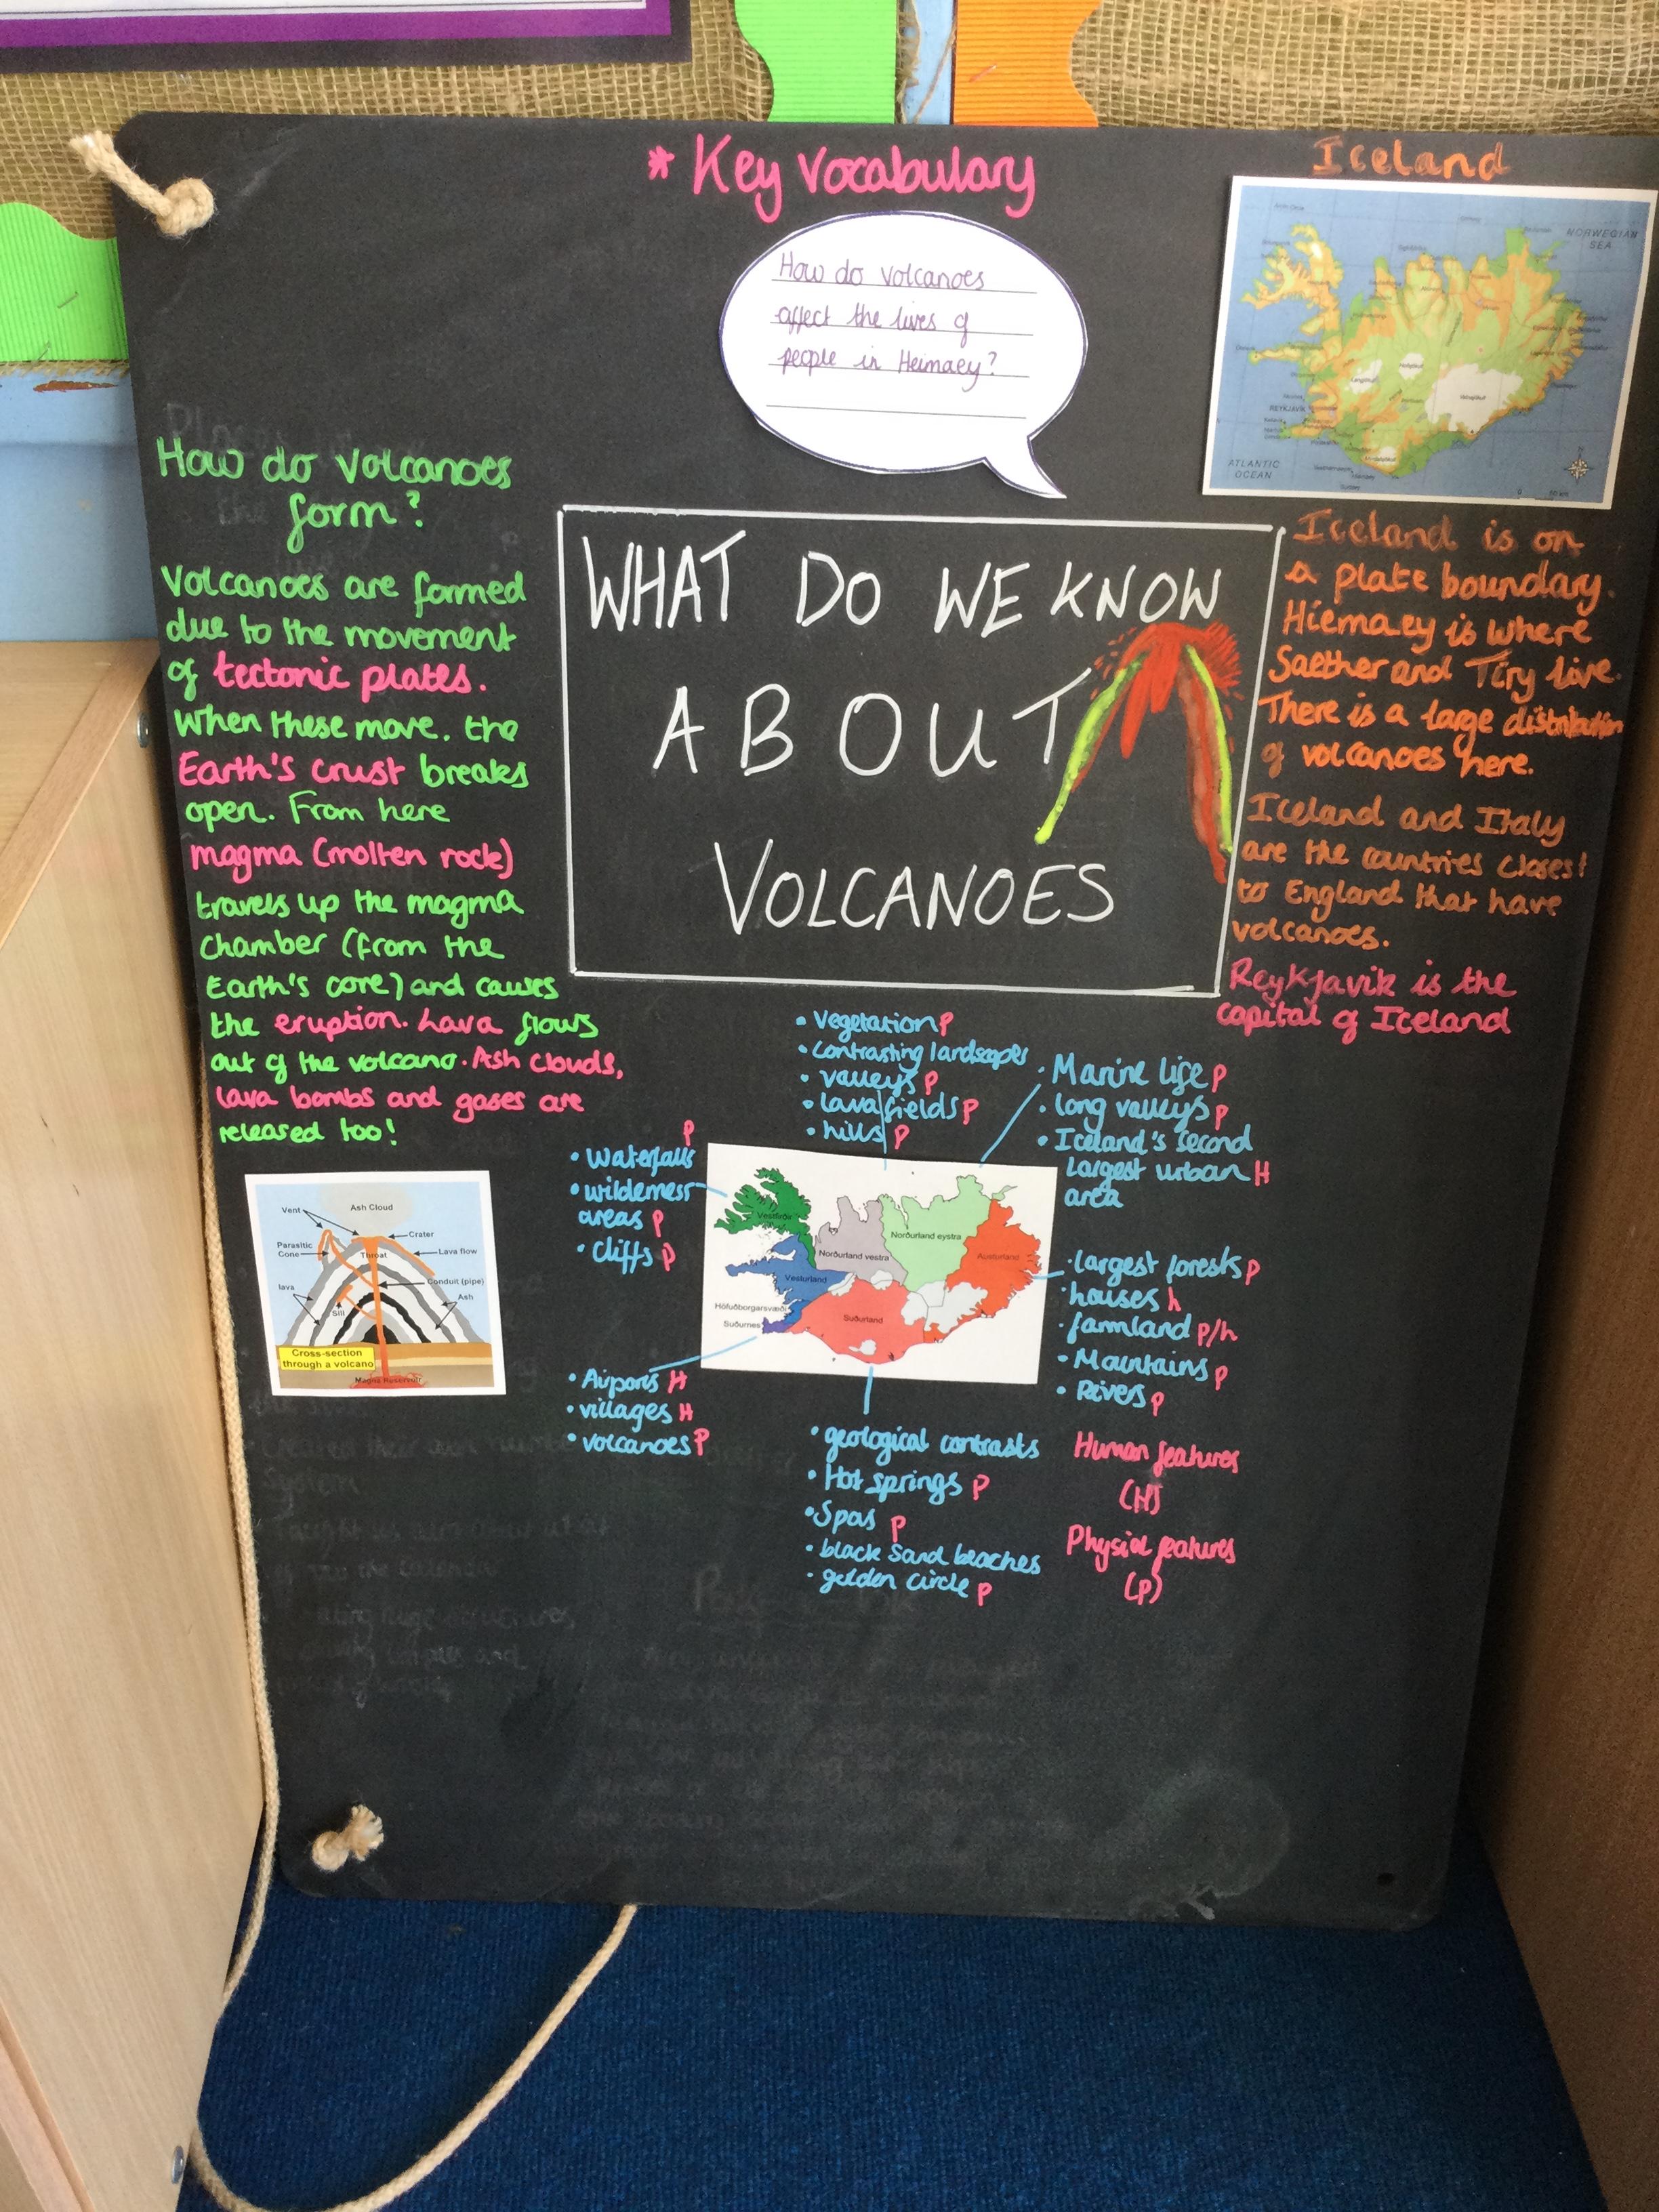 * Key Vocabulary
How do volcanoes
affect the lives of
people in Heimaey?
Iceland
NORWEGIAN
SEA
REYKJAVIK
ATLANTIC
OCEAN
How do volcanoes
form?
Volcanoes are formed
due to the movement
of tectonic plates.
When these move. the
Earth's crust breaks
open. From here
magma (molten rock)
travels up the magma
chamber (from the
Earth's core) and causes
the eruption. Lava flows
out of the volcano. Ash clouds,
lava bombs and gases are
released too!
WHAT DO WE KNOW
ABOUT
VOLCANOES
Iceland is on
a plate boundary.
Hiemaey is where
Saether and Tiry live.
There is a large distribution
of volcanoes here.
Iceland and Italy
are the countries closest
to England that have
volcanoes.
Reykjavik is the
capital of Iceland
Vent
Ash Cloud
Crater
Parasitic
Cone
Throat
Lava flow
Conduit (pipe)
lava
Ash
Sill
Cross-section
through a volcano
Magma Reservoir
• Vegetation P
• contrasting landscapes
• valleys P
• lava fields P
• hills P
• Marine life P
• long valleys P
• Iceland's second
largest urban H
area
P
• Waterfalls
• wilderness
areas P
• cliffs P
Vestfirðir
Norðurland vestra
Norðurland eystra
Austurland
Vesturland
Höfuðborgarsvæði
Suðurnes
Suðurland
• largest forests P
• houses h
• farmland P/h
• Mountains P
• Rivers P
• Airports H
• villages H
• volcanoes P
• geological contrasts
• Hot springs P
• Spas P
• black sand beaches
• golden circle P
Human features
(H)
Physial features
(P)